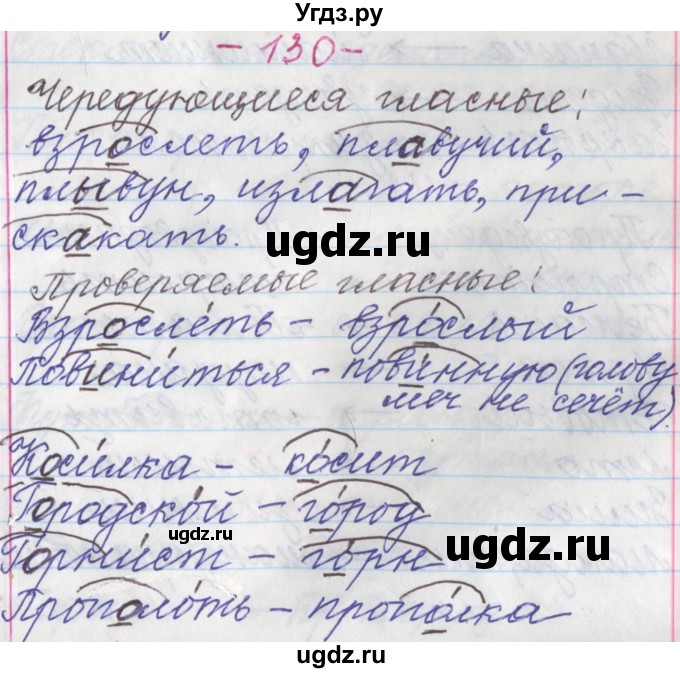 Угдз.ру
- 130 -
Чередующиеся гласные:
взрослеть, плавучий,
плывун, излагать, при-
скакать.
ugdz.ru
Проверяемые гласные:
Взросле́ть - взро́слый
Повини́ться - пови́нную (голову
меч не сечёт).
Коси́лка - ко́сит
Городско́й - го́род
Горни́ст - го́рн
ugdz.ru
ugdz.ru
Прополо́ть - пропо́лка
ugdz.ru